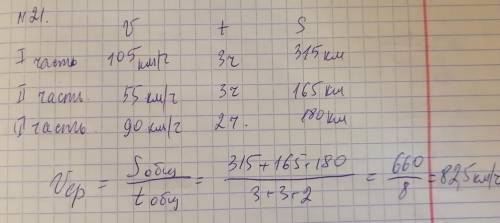 №21.
V t S
I часть 105 км/ч 3ч 315 км
II часть. 55 км/ч 3ч 165 км
II часть. 90 км/ч 2ч. 180 км
Vср = Sобщ / tобщ = 315+165+180 / 3+3+2 = 660 / 8 = 825 км/ч